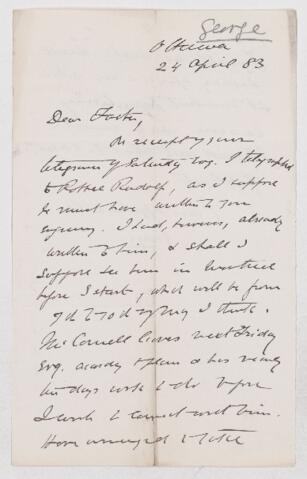 George
Ottawa
24 April 83
Dear Foster,
On receipt of your
telegram of Saturday Evg. I telegraphed
to Rudolf, as I suppose
he must have written to you
enquiring. I had, however, already
written to him, & shall I
suppose see him in Montreal
before I start, which will be from
9th to 10th May I think.
McConnell leaves next Friday
Evg. according to plan & has nearly
ten days work to do before
I wish to connect with him.
Have arranged to take